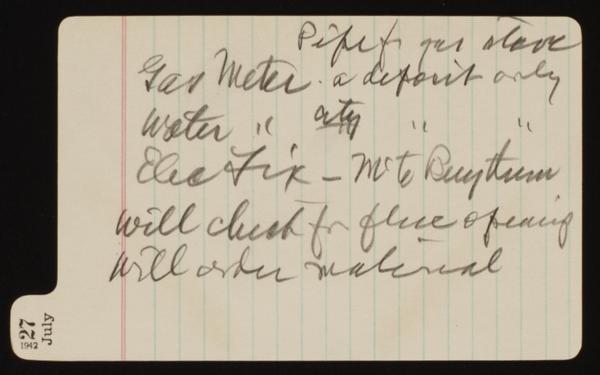 Pipe for gas stove
Gas Meter. a deposit only
Water " city " "
Elec Fix - Mr to Buy them
will check for flue opening
will order material
27
1942
July